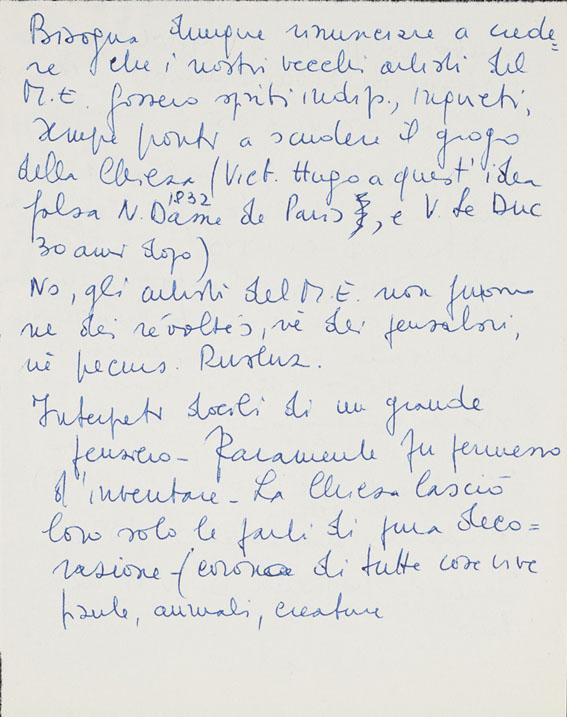 Bisogna dunque rinunciare a crede=
re che i nostri vecchi artisti del
M.E. fossero spiriti indip., inquieti,
sempre pronti a scuotere il giogo
della Chiesa (Vict. Hugo a quest'idea
falsa N. Dame de Paris 1832, e V. le Duc
30 anni dopo)
No, gli artisti del M.E. non furono
ne dei révoltés, nè dei pensatori,
nè precurs. Rivoluz.
Interpreti docili di un grande
pensiero - Raramente fu permesso
d'inventare - La Chiesa lasciò
loro solo le parti di pura deco=
razione - ( di tutte cose vive
piante, animali, creature